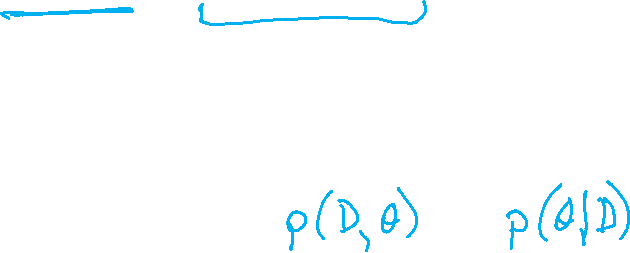 p(D, θ) p(θ|D)